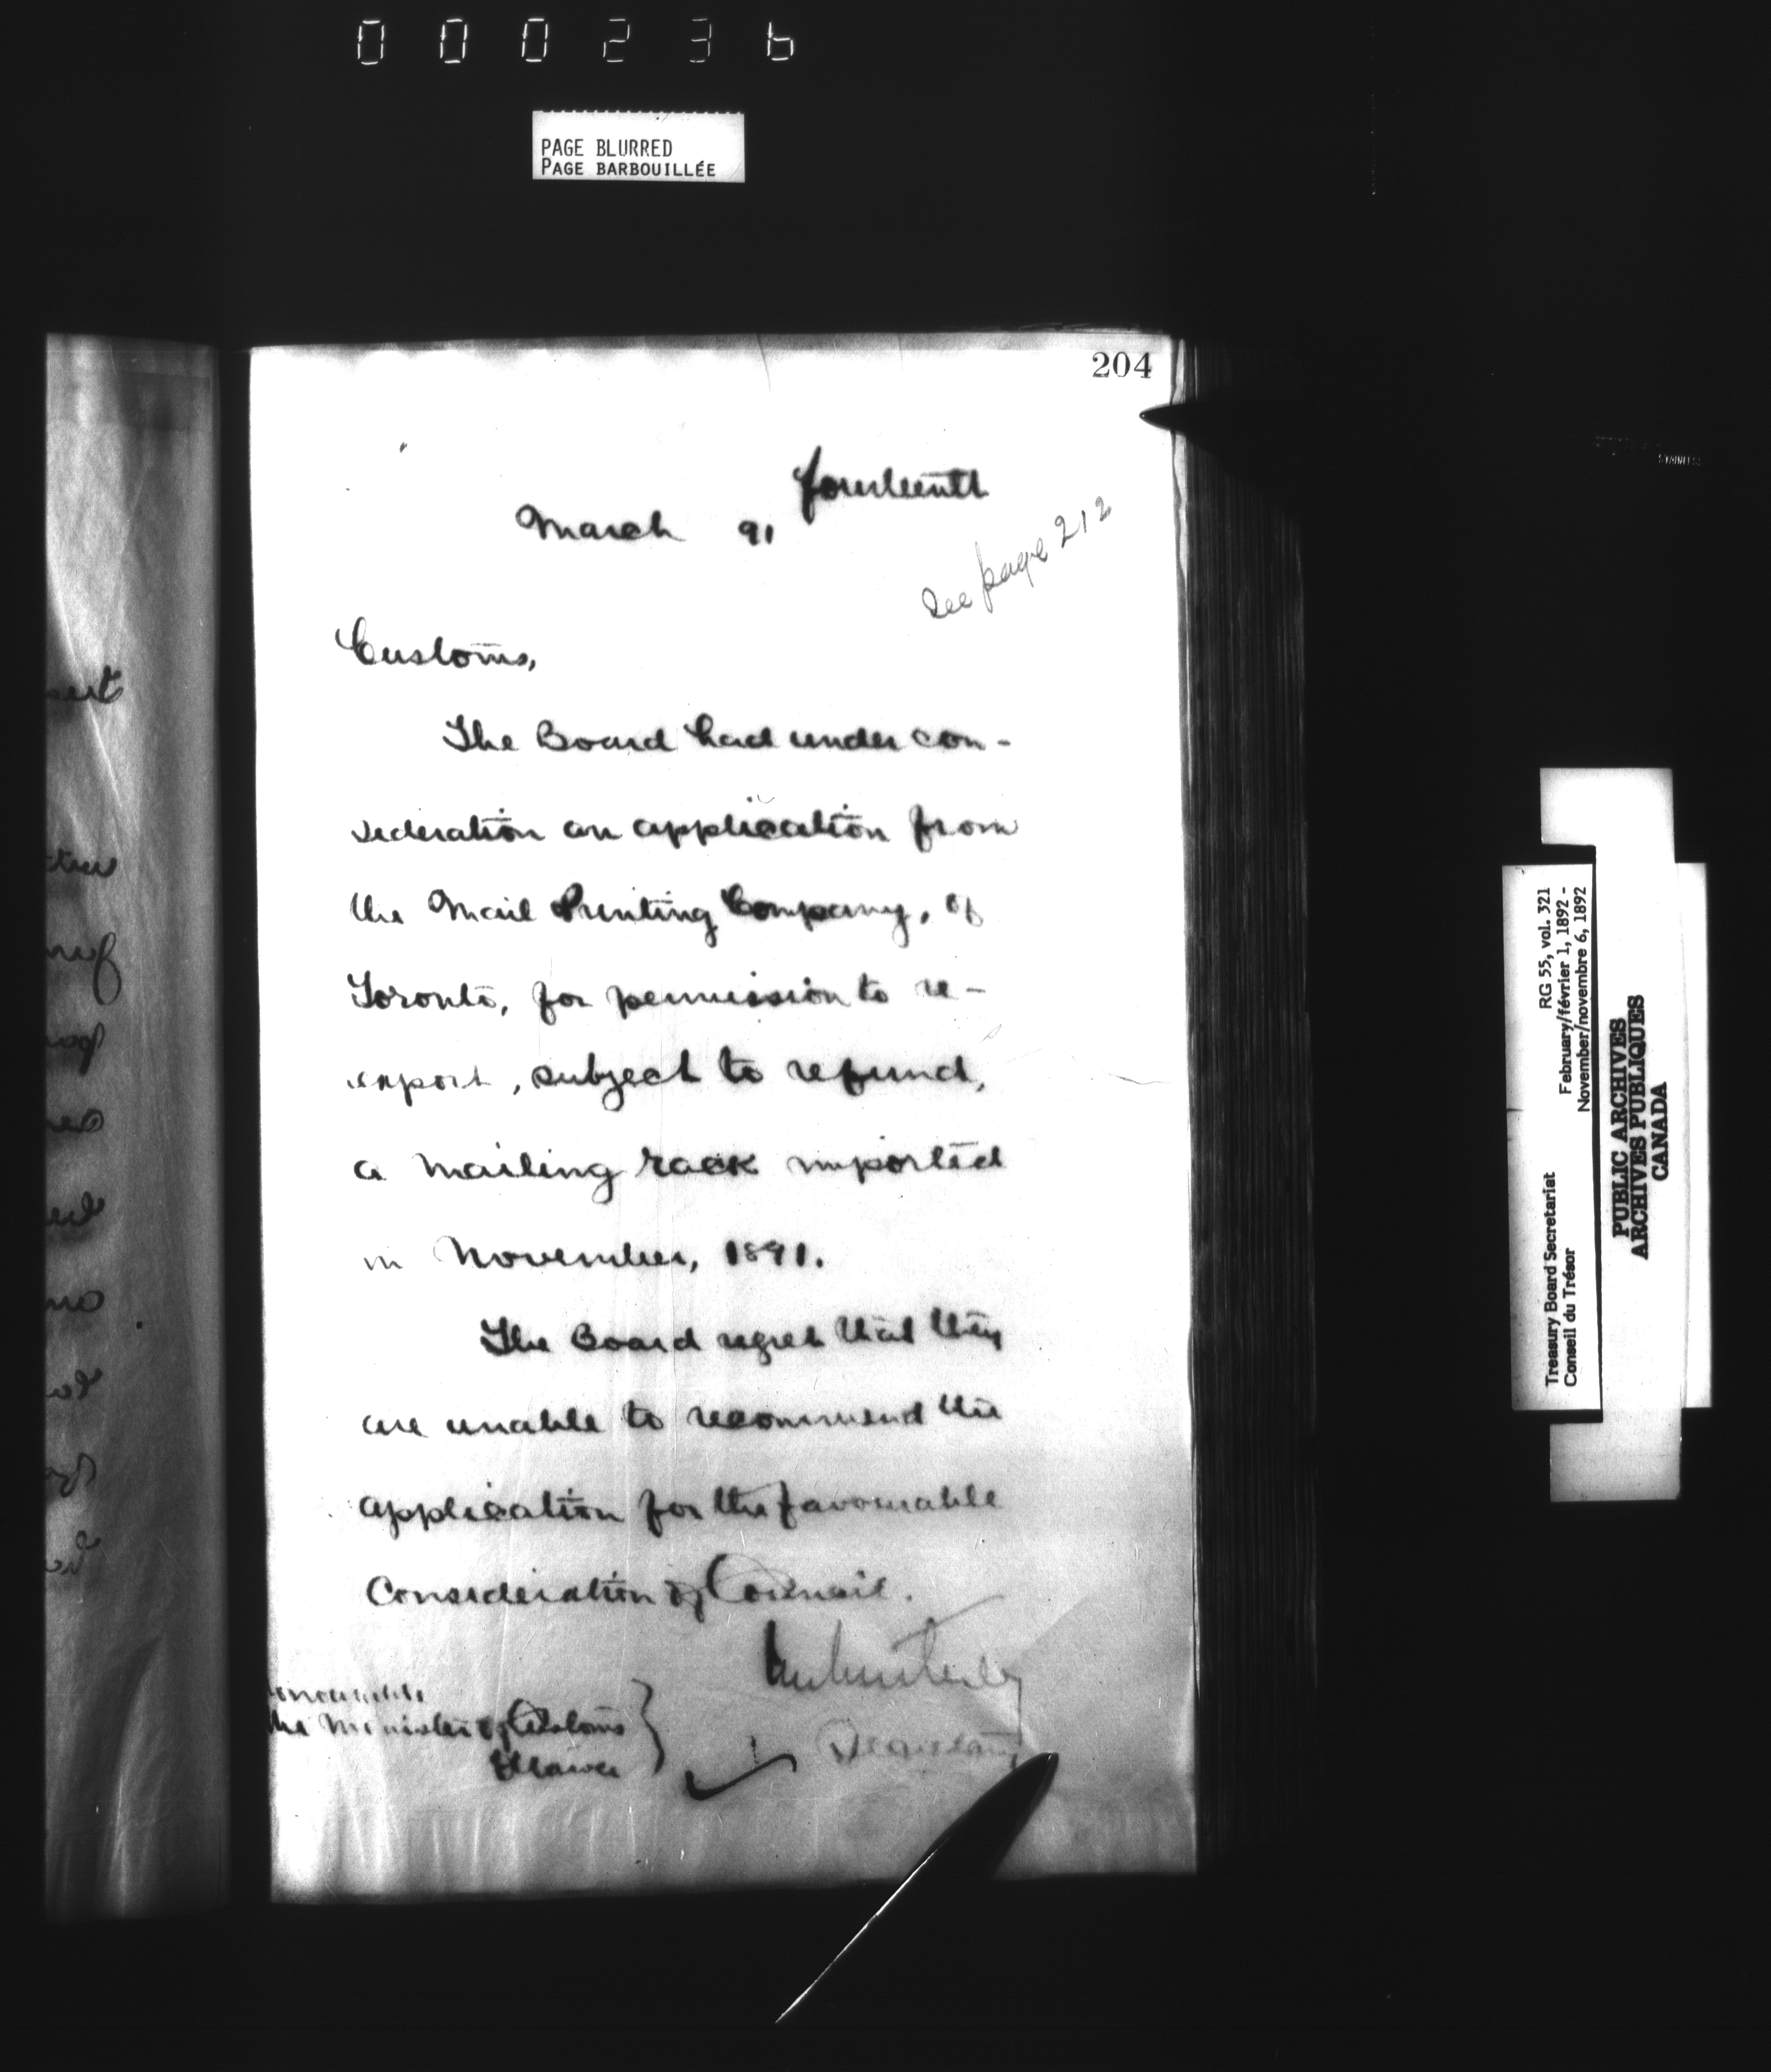 000236
PAGE BLURRED
PAGE BARBOUILLÉE
204
fourteenth
March 91
see page 212
Customs,
The Board had under con-
sideration an application from
the Mail Printing Company, of
Toronto, for permission to re-
export, subject to refund,
a mailing rack imported
in November, 1891.
The Board regret that they
are unable to recommend the
application for the favourable
Consideration of Council.
Secretary
onourable
the Minister of Customs
Ottawa
RG 55, vol. 321
February/février 1, 1892 -
November/novembre 6, 1892
Treasury Board Secretariat
Conseil du Trésor
PUBLIC ARCHIVES
ARCHIVES PUBLIQUES
CANADA